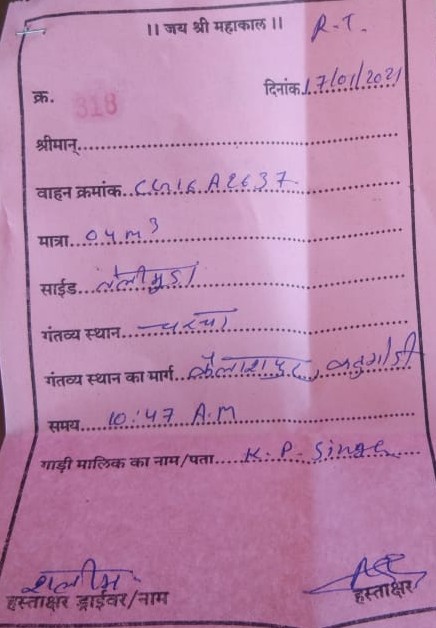 ॥ जय श्री महाकाल ॥ R.T.
क्र. 318 दिनांक 17/01/2021
श्रीमान्
वाहन क्रमांक CG16A2637
मात्रा 04 m³
साईड तेलीमुड़ा
गंतव्य स्थान चरचा
गंतव्य स्थान का मार्ग कैलाशपुर,
समय 10:47 A.M
गाड़ी मालिक का नाम/पता K. P. Singh
सलीम
हस्ताक्षर ड्राईवर/नाम हस्ताक्षर